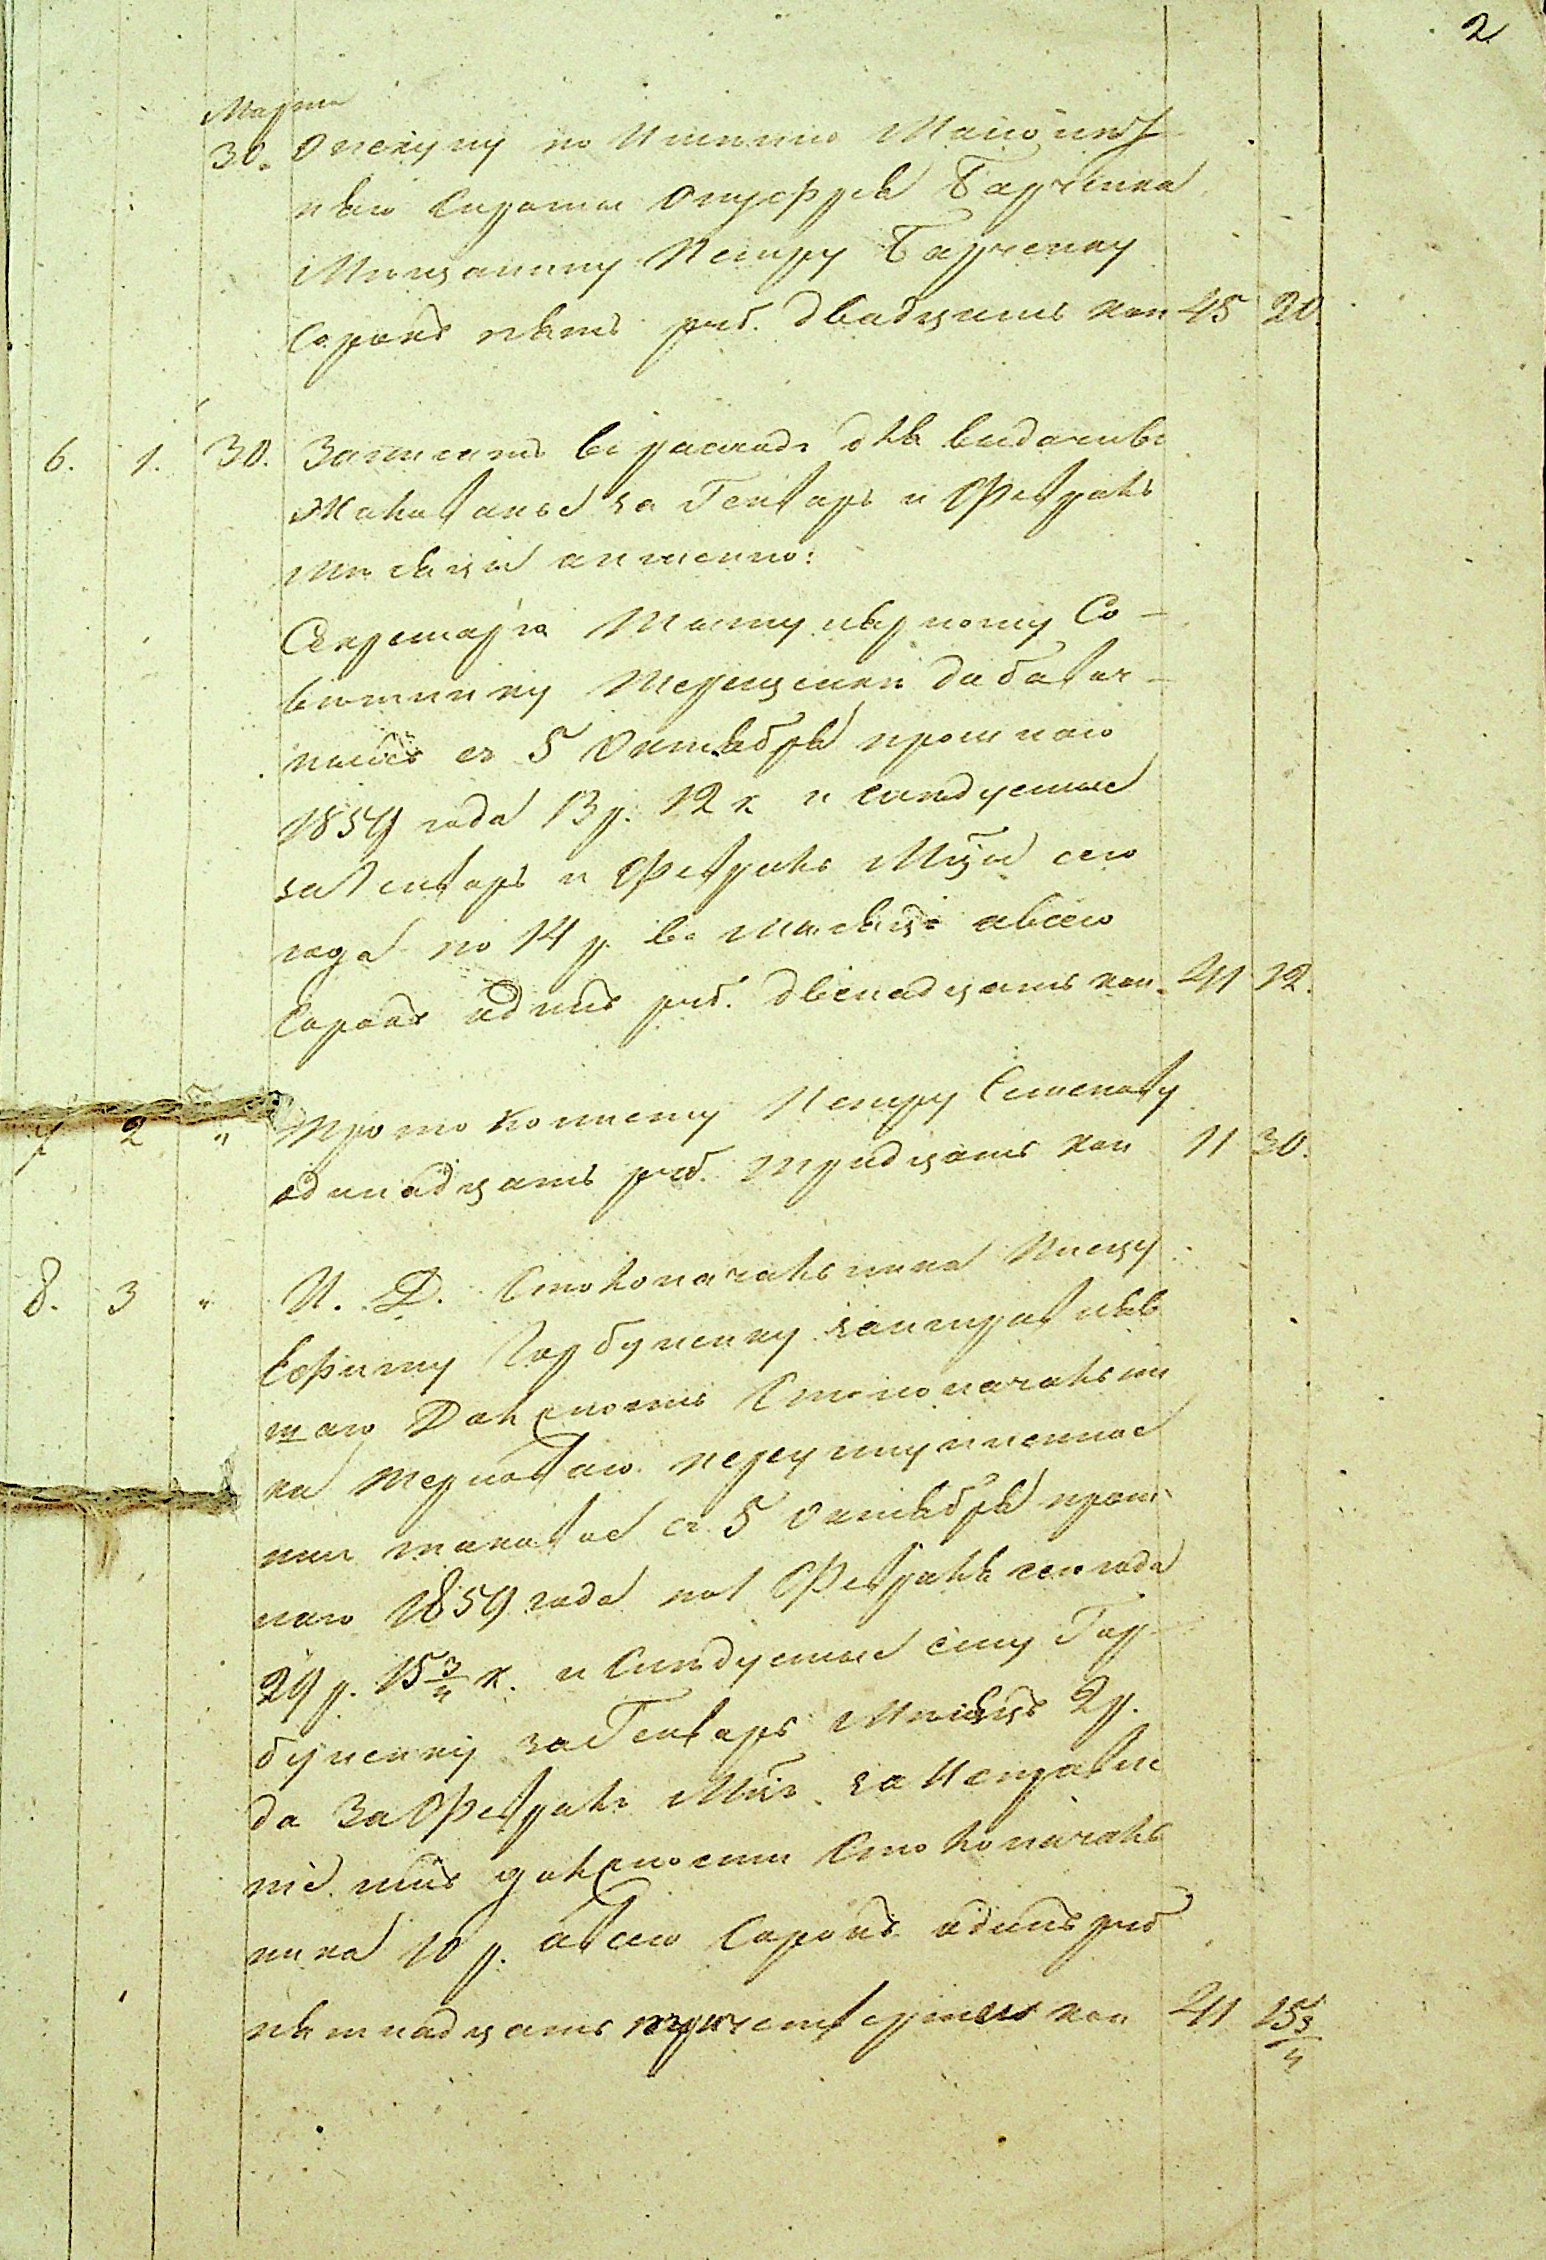 2
Марта
30. Опекуну по имению Малолет-
няго Сироты Онуфрия Барченка
Мещанину Петру Барченку
Сорокъ пять руб. двадцать коп 45 20.
6. 1. 30. Записать въ расходъ для выдачи въ
Жалованье за Генварь и Февраль
месяцы а именно:
Секретарю Титулярному Со-
ветнику Терещенки добавоч-
ныхъ съ 5 Октября прошлаго
1859 года 13 р. 12 к и следуемые
за Генварь и Февраль Мцы сего
года по 14 р. въ месяцъ а всего
Сорокъ одинъ руб. двенадцать коп. 41 12.
7 2 " Протоколисту Петру Семенову
одинадцать руб. тридцать коп 11 30.
8. 3 " И. Д. Столоначальника Писцу
Ефиму Горбуненку за исправление
таго Должность Столоначальни
ка Терноваго
жаловае съ 5 Октября прош
лаго 1859 года по 1 Февраля сего года
29 р. 15 3/4 к. и следуемые ему Гор-
буненку за Генварь Месяцъ 2 р.
да за Февраль Мцъ за Исправле
ние имъ должности Столоначаль
ника 10 р. а всего Сорокъ одинъ руб
пятнадцать три четвертых коп 41 15 3/4